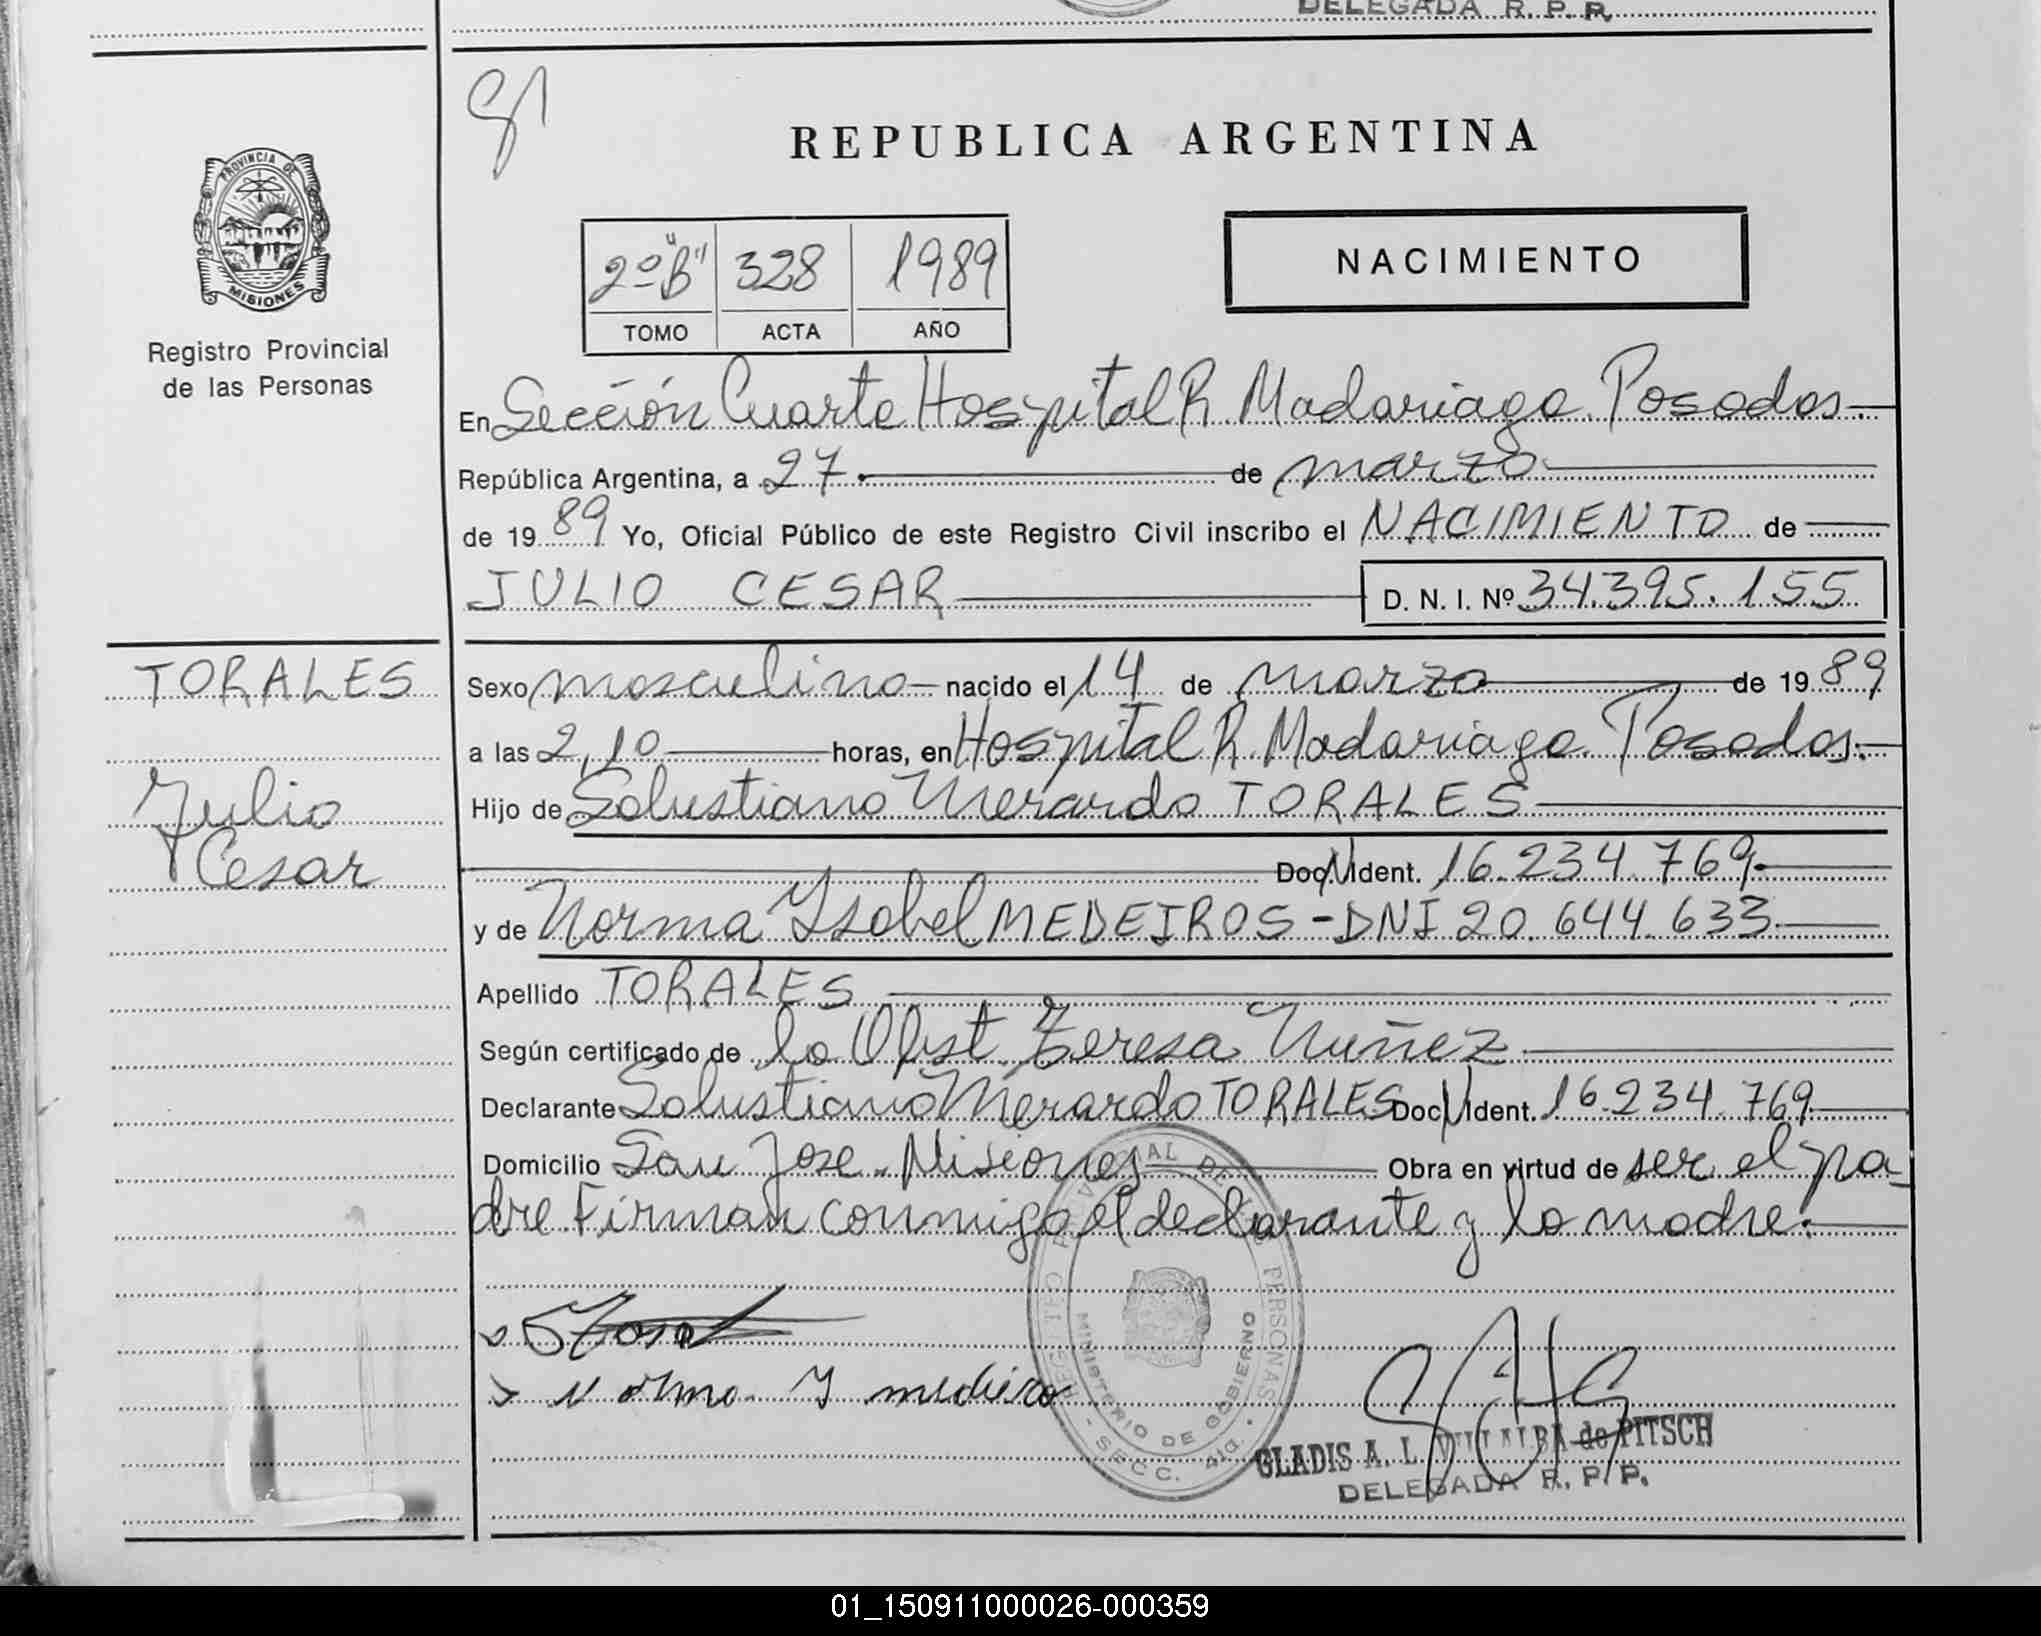 DELEGADA R. P. P.
REPUBLICA ARGENTINA
PROVINCIA DE
MISIONES
Registro Provincial
de las Personas
2º "B" 328 1989
TOMO ACTA AÑO
NACIMIENTO
En Sección Cuarta Hospital R. Madariaga. Posadas.
República Argentina, a 27 de marzo
de 1989 Yo, Oficial Público de este Registro Civil inscribo el NACIMIENTO de
JULIO CESAR D. N. I. Nº 34.395.155
TORALES
Julio
Cesar
Sexo masculino nacido el 14 de marzo de 1989
a las 2,10 horas, en Hospital R. Madariaga. Posadas.
Hijo de Salustiano Merardo TORALES
Doc. N. Ident. 16.234.769
y de Norma Ysabel MEDEIROS - DNI 20.644.633
Apellido TORALES
Según certificado de la Obst. Teresa Nuñez
Declarante Salustiano Merardo TORALES Doc. N. Ident. 16.234.769
Domicilio San Jose. Misiones Obra en virtud de ser el pa-
dre. Firman conmigo el declarante y la madre.
Norma Y medeiro
REGISTRO PROVINCIAL DE LAS PERSONAS
MINISTERIO DE GOBIERNO
SECC. 4ta.
GLADIS A. L. VILLALBA de PITSCH
DELEGADA R. P. P.
01_150911000026-000359